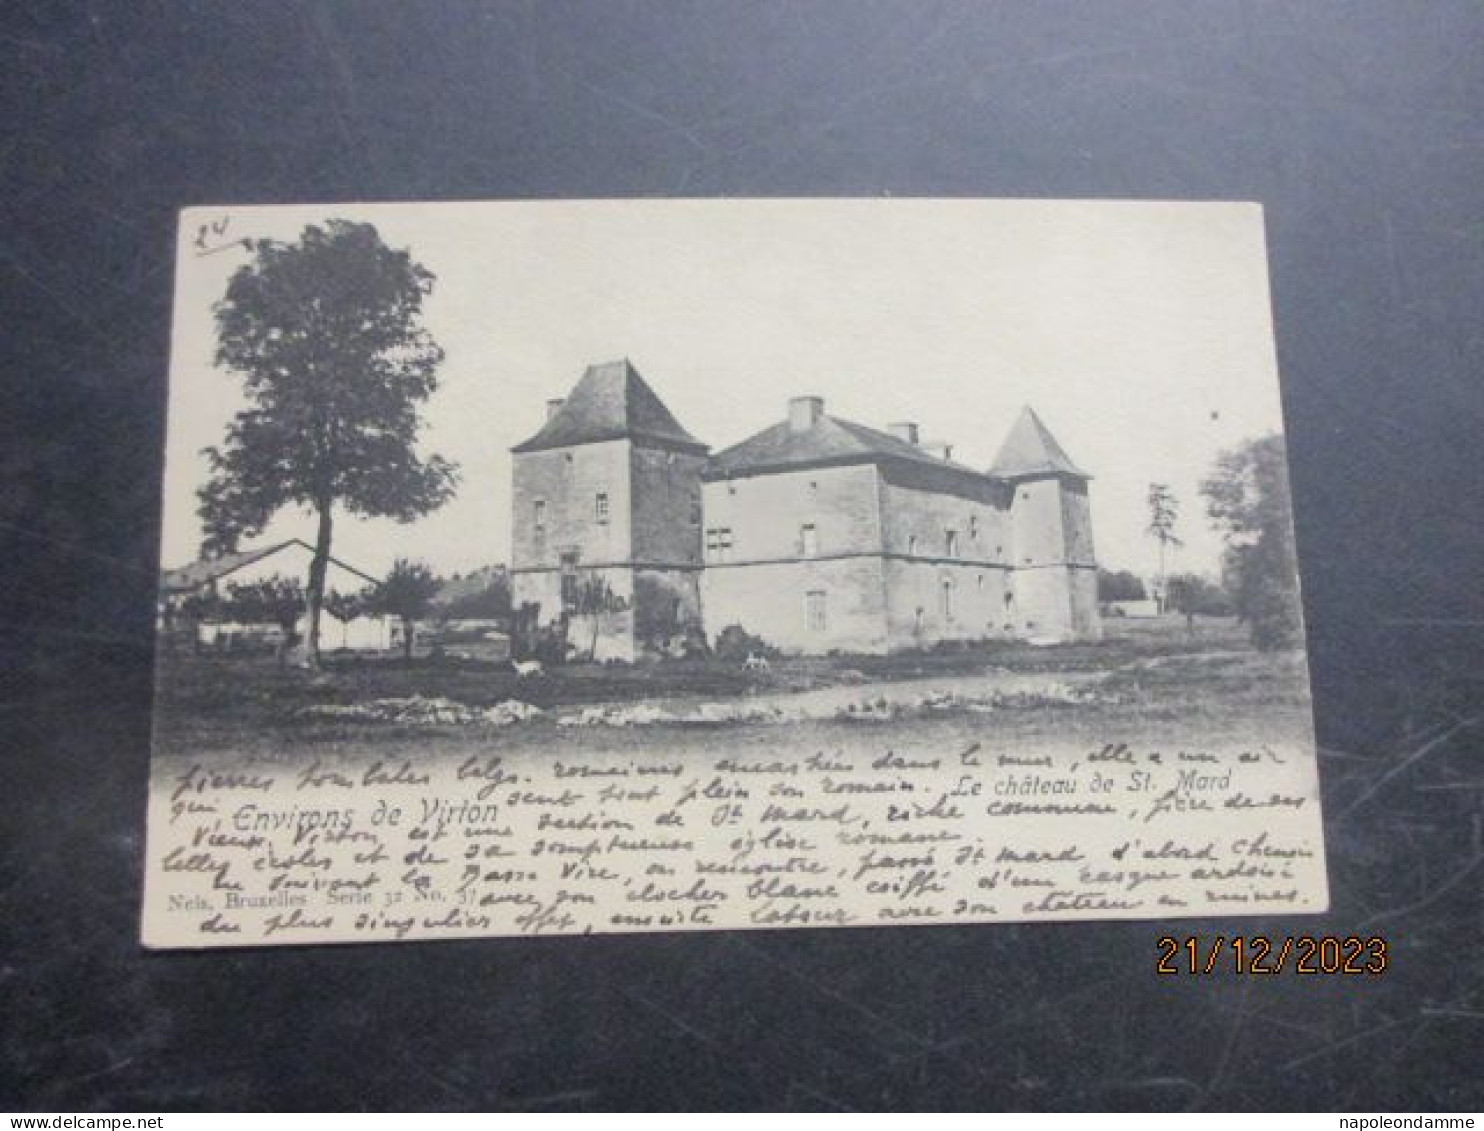 24
pierres tombales belgo-romaines encastrées dans le mur, elle a un air
qui, sent tout plein son romain. Le château de St. Mard
Environs de Virton
Vieux Virton est une section de St Mard, riche commune, fière de ses
belles écoles et de sa somptueuse église romane.
En suivant la Basse Vire, on rencontre, passé St Mard, d'abord Chenois
avec son clocher blanc coiffé d'un casque ardoisé
Nels, Bruxelles Serie 32 No. 37
du plus singulier effet, ensuite Latour avec son château en ruines.
21/12/2023
napoleondamme